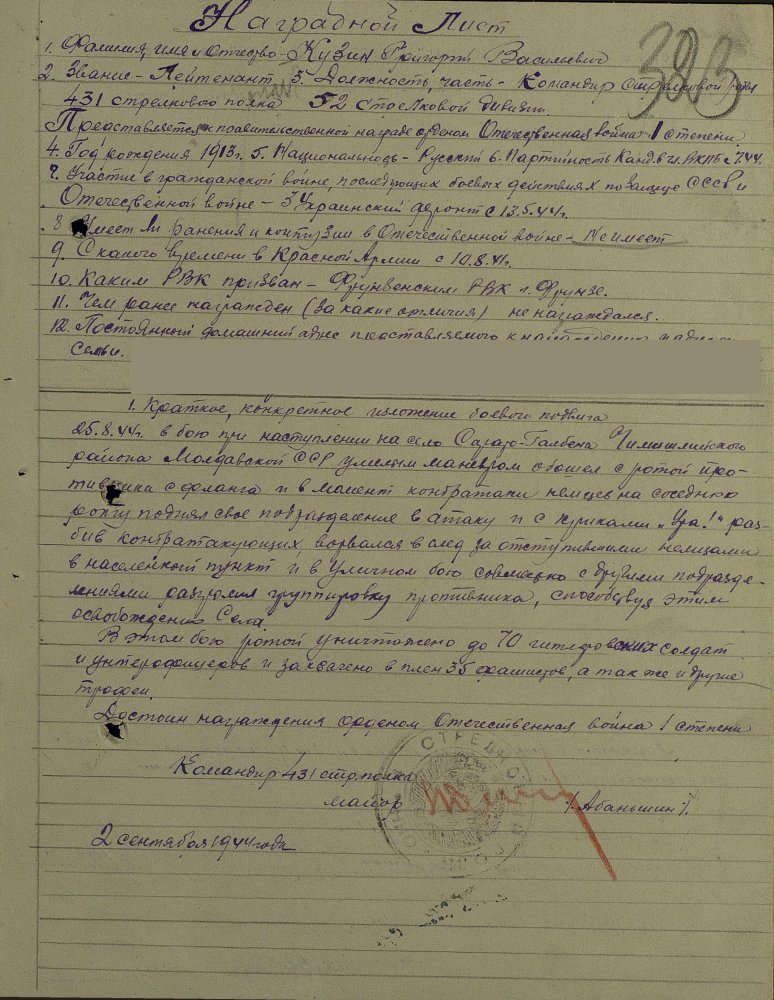 Наградной Лист
323
1. Фамилия, имя и Отчество - Кузин Григорий Васильевич
2. Звание - Лейтенант 3. Должность, часть - Командир стрелковой роты
431 стрелкового полка 52 стрелковой дивизии.
Представляется к правительственной награде орденом Отечественная война 1 степени
4. Год рождения 1913г. 5. Национальность - Русский 6. Партийность Канд. в чл. ВКПБ с 7.44.
7. Участие в гражданской войне, последующих боевых действиях по защите СССР и
Отечественной войне - 3 Украинский фронт с 13.5.44г.
8 Имеет ли ранения и контузии в Отечественной войне - Не имеет
9. С какого времени в Красной Армии с 10.8.41г.
10. Каким РВК призван - Фрунзенским РВК г. Фрунзе.
11. Чем ранее награжден (за какие отличия) не награждался.
12. Постоянный домашний адрес представляемого к награждению
семьи.
1. Краткое, конкретное изложение боевого подвига
25.8.44г. в бою при наступлении на село Сарато-Галбена Чимишлийского
района Молдавской ССР умелым маневром обошел с ротой про-
тивника с фланга и в момент контратаки немцев на соседнюю
роту поднял свое подразделение в атаку и с криками „Ура!" раз-
бив контратакующих, ворвался в след за отступившими немцами
в населенный пункт и в уличном бою совместно с другими подразде-
лениями разгромил группировку противника, способствуя этим
освобождению Села.
В этом бою ротой уничтожено до 70 гитлеровских солдат
и унтерофицеров и захвачено в плен 35 фашистов, а так же и другие
трофеи.
Достоин награждения орденом Отечественная война 1 степени
Командир 431 стр. полка
майор /Абаньшин/.
2 сентября 1944 года